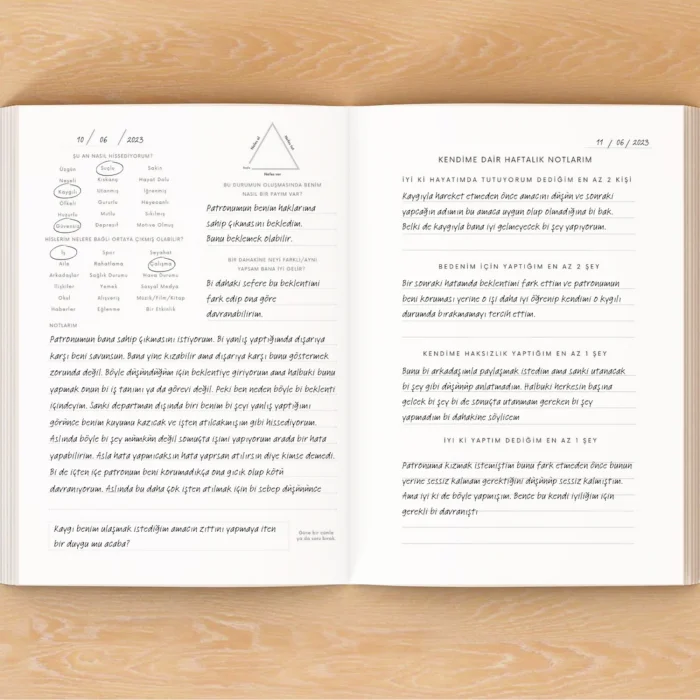 10 / 06 / 2023
ŞU AN NASIL HİSSEDİYORUM?
Üzgün Suçlu Sakin
Neşeli Kıskanç Hayal Dolu
Kaygılı Utanmış İğrenmiş
Öfkeli Gururlu Heyecanlı
Huzurlu Mutlu Sıkılmış
Güvensiz Depresif Motive Olmuş
HİSLERİM NELERE BAĞLI ORTAYA ÇIKMIŞ OLABİLİR?
İş Spor Seyahat
Aile Rahatlama Çalışma
Arkadaşlar Sağlık Durumu Hava Durumu
İlişkiler Yemek Sosyal Medya
Okul Alışveriş Müzik/Film/Kitap
Haberler Eğlenme Bir Etkinlik
BU DURUMUN OLUŞMASINDA BENİM
NASIL BİR PAYIM VAR?
Patronumun benim haklarıma
sahip çıkmasını bekledim.
Bunu beklemek olabilir.
BİR DAHAKİNE NEYİ FARKLI/AYNI
YAPSAM BANA İYİ GELİR?
Bi dahaki sefere bu beklentimi
fark edip ona göre
davranabilirim.
NOTLARIM
Patronumun bana sahip çıkmasını istiyorum. Bi yanlış yaptığımda dışarıya
karşı beni savunsun. Bana yine kızabilir ama dışarıya karşı bunu göstermek
zorunda değil. Böyle düşündüğüm için beklentiye giriyorum ama halbuki bunu
yapmak onun bi iş tanımı ya da görevi değil. Peki ben neden böyle bi beklenti
içindeyim. Sanki departman dışında biri benim bi şeyi yanlış yaptığımı
görünce benim kuyumu kazıcak ve işten atılcakmışım gibi hissediyorum.
Aslında böyle bi şey mümkün değil sonuçta işimi yapıyorum arada bir hata
yapabilirim. Asla hata yapmıcaksın hata yaprsan atılırsın diye kimse demedi.
Bi de işten içe patronum beni korumadıkça ona gıcık olup kötü
davranıyorum. Aslında bu daha çok işten atılmak için bi sebep düşününce
Kaygı benim ulaşmak istediğim amacın zıttını yapmaya iten
bir duygu mu acaba?
11 / 06 / 2023
KENDİME DAİR HAFTALIK NOTLARIM
İYİ Kİ HAYATIMDA TUTUYORUM DEDİĞİM EN AZ 2 KİŞİ
Kaygıyla hareket etmeden önce amacını düşün ve sonraki
yapcağın adımın bu amaca uygun olup olmadığına bi bak.
Belki de kaygıyla bana iyi gelmeyecek bi şey yapıyorum.
BEDENİM İÇİN YAPTIĞIM EN AZ 2 ŞEY
Bir sonraki hatamda beklentimi fark ettim ve patronumun
beni koruması yerine o işi daha iyi öğrenip kendimi o kygılı
durumda bırakmamayı tercih ettim.
KENDİME HAKSIZLIK YAPTIĞIM EN AZ 1 ŞEY
Bunu bi arkadaşımla paylaşmak istedim ama sanki utanacak
bi şey gibi düşünüp anlatmadım. Halbuki herkesin başına
gelcek bi şey bi de sonuçta utanmam gereken bi şey
yapmadım bi dahakine söylicem
İYİ Kİ YAPTIM DEDİĞİM EN AZ 1 ŞEY
Patronuma kızmak istemiştim bunu fark etmeden önce bunun
yerine sessiz kalmam gerektiğini düşünüp sessiz kalmıştım.
Ama iyi ki de böyle yapmışım. Bence bu kendi iyiliğim için
gerekli bi davranıştı